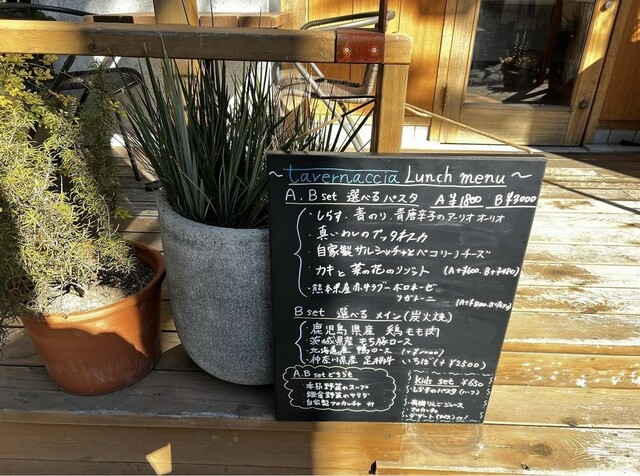 ~ tavernaccia Lunch menu ~
A.B set 選べるパスタ A ¥1800 B ¥3000
・しらす・青のり・青唐辛子のアーリオ・オーリオ
・真いわしのプッタネスカ
・自家製サルシッチャとペコリーノチーズ
・カキと菜の花のリゾット (A+¥600. B+¥480)
・熊本県産赤牛ラグーボロネーゼ
リガトーニ
B set 選べるメイン (炭火焼)
・鹿児島県産 鶏もも肉
・茨城県産もち豚ロース
・北海道産 鴨ロース (+¥1000)
・神奈川県産 足柄牛 いちぼ (+¥2500)
A.B set どちらも
・季節野菜のスープ
・鎌倉野菜のサラダ
・自家製フォカッチャ 付
Kids set ¥650
・しらすのパスタ (ハーフ)
・りんごジュース
・フォカッチャ